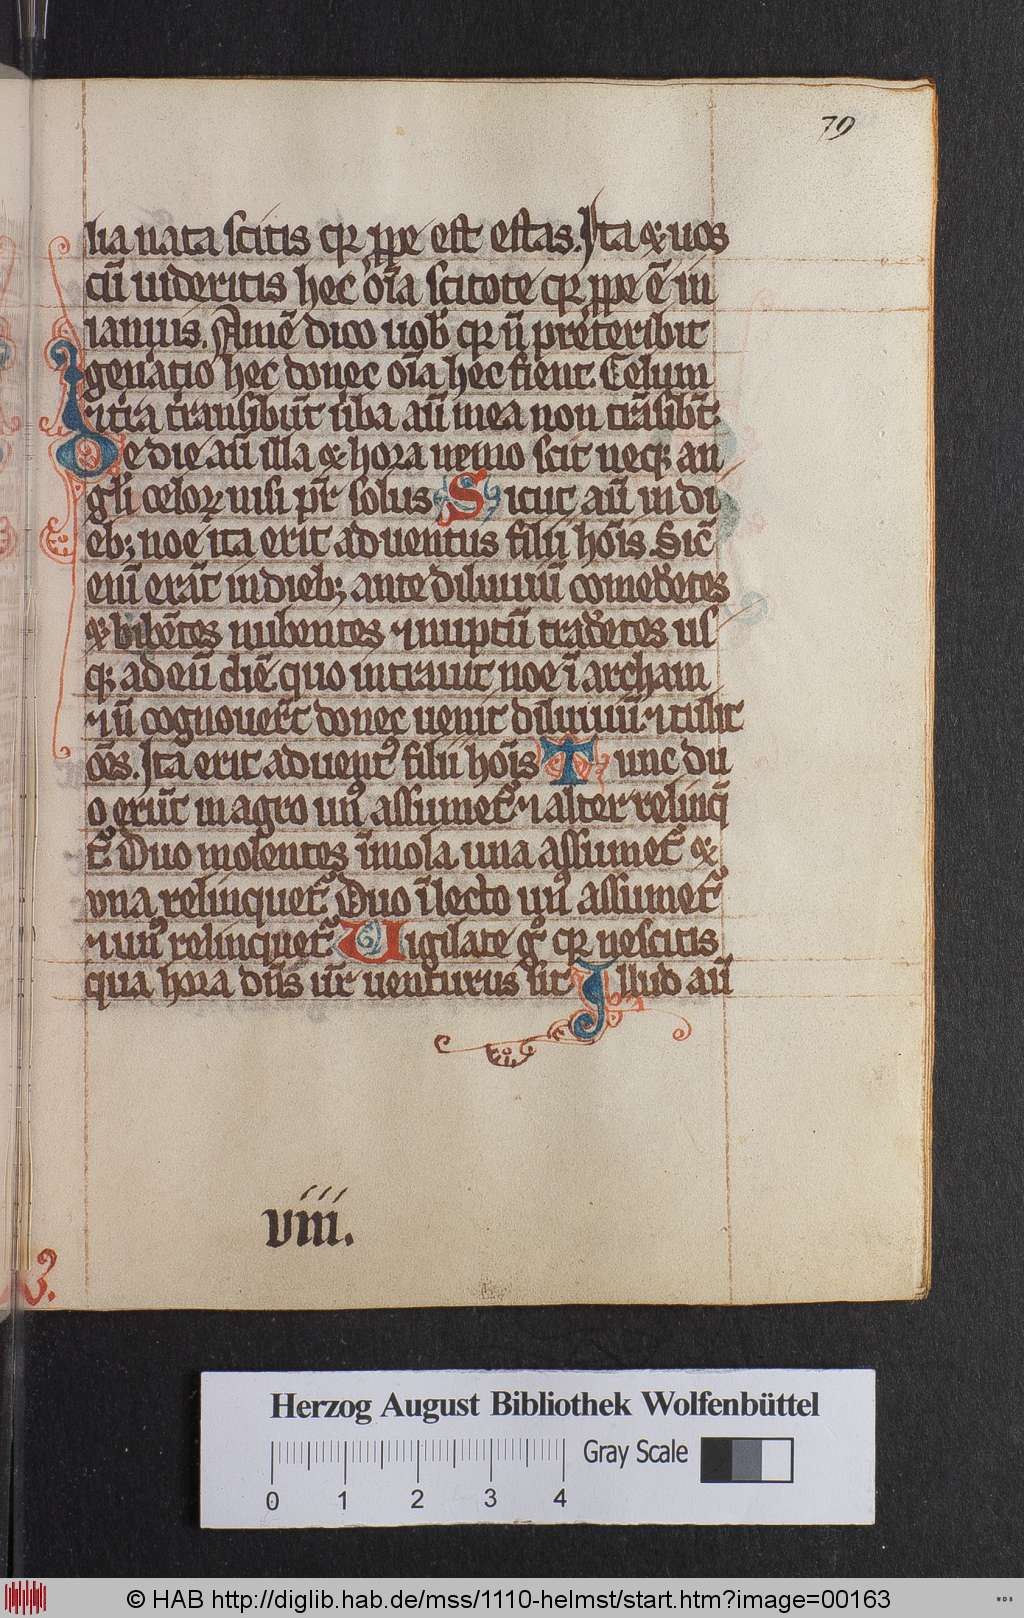 79
lia nata scitis qꝛ ꝓpe est estas. Ita ⁊ uos
cū uideritis hec oīa scitote qꝛ ꝓpe ē in
ianuis. Amē dico uob qꝛ ñ pretᵉribit
genꝰatio hec donec oīa hec fient. Celum
⁊ tꝛa transibūt ūba aū mea non trāsibt̄
De die aū illa ⁊ hora nemo scit neqꝫ an
gli celoꝝ nisi pr̄ solus Sicut aū in di
ebꝫ noe ita erit aduentus filii hoīs Sic̄
eni erāt in diebꝫ ante diluuiū comedētes
⁊ bibētes nubentes ⁊ nuptū tradētes us
qꝫ ad eū diē quo intrauit noe ī archam
⁊ ñ cognouer̄t donec uenit diluuiū ⁊ tulit
oēs. Ita erit aduentꝰ filii hoīs Tunc du
o erūt in agro unꝰ assumetᷣ ⁊ alter relinq̄
tᷣ Duo molentes ī mola una assumetᷣ ⁊
una relinquetᷣ Duo ī lecto unꝰ assumetᷣ
⁊ unꝰ relinquetᷣ Uigilate gͦ qꝛ nescitis
qua hora dn̄s ur̄ uenturus sit Illud aū
viii.
Herzog August Bibliothek Wolfenbüttel
Gray Scale
0 1 2 3 4
© HAB http://diglib.hab.de/mss/1110-helmst/start.htm?image=00163